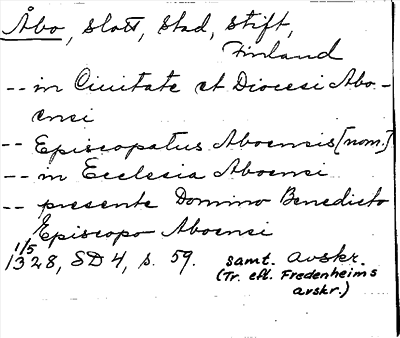 Åbo, slott, stad, stift,
Finland
-- in Ciuitate et Diocesi Abo-
ensi
-- Episcopatus Aboensis [nom.]
-- in Ecclesia Aboensi
-- presente Domino Benedicto
Episcopo Aboensi
1/5
1328, SD 4, s. 59. samt. avskr.
(Tr. efl. Fredenheims
avskr.)